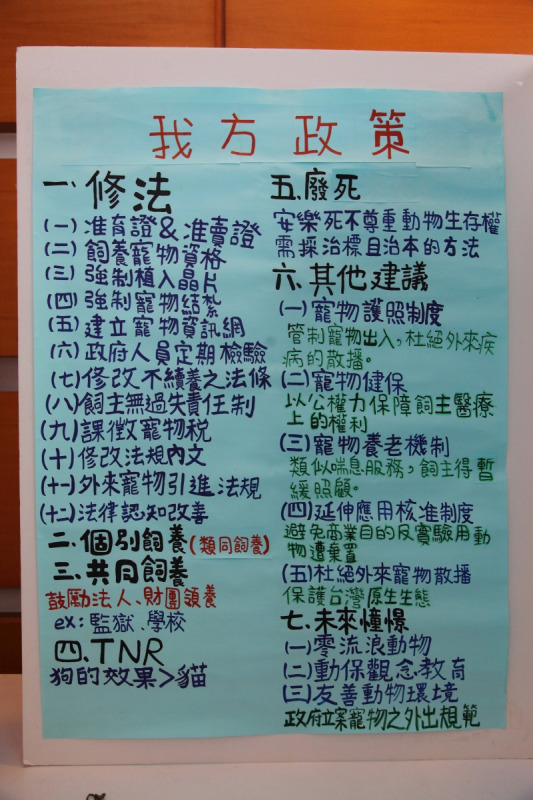 我方政策
一、修法
(一)准育證&准賣證
(二)飼養寵物資格
(三)強制植入晶片
(四)強制寵物結紮
(五)建立寵物資訊網
(六)政府人員定期檢驗
(七)修改不續養之法條
(八)飼主無過失責任制
(九)課徵寵物稅
(十)修改法規內文
(十一)外來寵物引進法規
(十二)法律認知改善
二、個別飼養(類同飼養)
三、共同飼養
鼓勵法人、財團領養
ex:監獄、學校
四、TNR
狗的效果>貓
五、廢死
安樂死不尊重動物生存權
需採治標且治本的方法
六、其他建議
(一)寵物護照制度
管制寵物出入,杜絕外來疾
病的散播。
(二)寵物健保
以公權力保障飼主醫療
上的權利
(三)寵物養老機制
類似喘息服務,飼主得暫
緩照顧。
(四)延伸應用核准制度
避免商業目的及實驗用動
物遭棄置
(五)杜絕外來寵物散播
保護台灣原生生態
七、未來憧憬
(一)零流浪動物
(二)動保觀念教育
(三)友善動物環境
政府立案寵物之外出規範